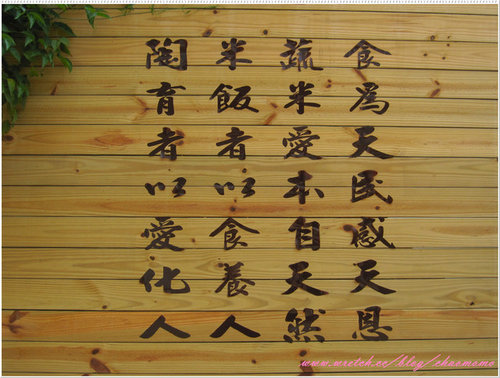 食為天民感天恩
蔬米愛本自天然
米飯者以食養人
陶育者以愛化人
www.wretch.cc/blog/chaomomo